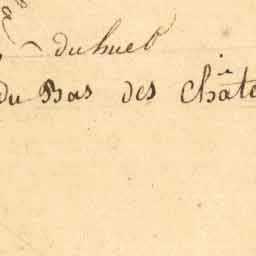 duhuel
du Bas des Châte